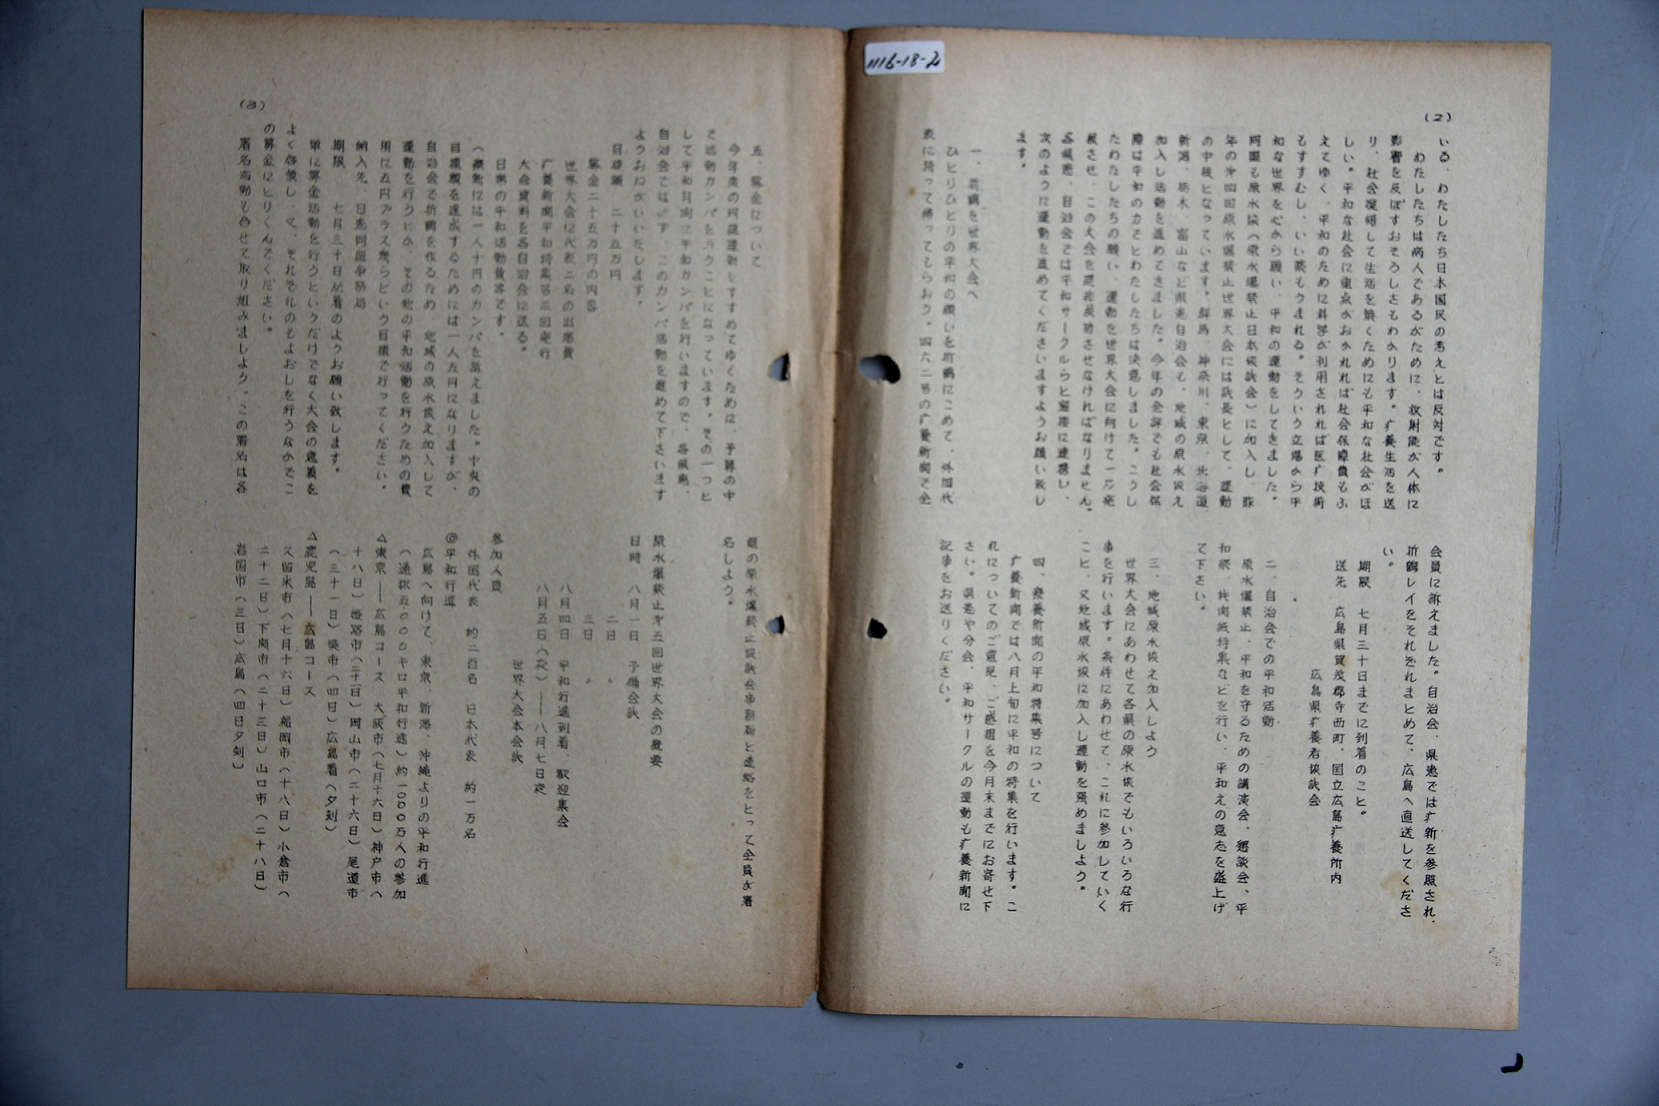 1116-18-2
(2)
いる、わたしたち日本国民の考えとは反対です。
わたしたちは病人であるがために、放射能が人体に
影響を及ぼすおそろしさもわかります。疒養生活を送
り、社会復帰して生活を築くためにも平和な社会がほ
しい。平和な社会に重点がおかれれば社会保障費もふ
えてゆく、平和のために科学が利用されれば医疒技術
もすすむし、いい薬もうまれる。そういう立場から平
和な世界を心から願い、平和の運動をしてきました。
同盟も原水協(原水爆禁止日本協議会)に加入し、昨
年の第四回原水爆禁止世界大会には議長として、運動
の中核となっています。群馬、神奈川、東京、北海道、
新潟、栃木、富山など県患自治会も、地域の原水協え
加入し活動を進めてきました。今年の全評でも社会保
障は平和の力でとわたしたちは決意しました。こうし
たわたしたちの願い、運動を世界大会に向けて一万発
展させ、この大会を是非成功させなければなりません。
各県患、自治会では平和サークルらと密接に連携し、
次のように運動を進めてくださいますようお願い致し
ます。
一、折鶴を世界大会へ
ひとりひとりの平和の願いを折鶴にこめて、外国代
表に持って帰ってもらおう。四六二号の疒養新聞で全
会員に訴えました。自治会、県患では疒新を参照され、
折鶴レイをそれぞれまとめて、広島へ直送してくださ
い。
期限 七月三十日までに到着のこと。
送先 広島県賀茂郡寺西町、国立広島疒養所内
広島県疒養者協議会
二、自治会での平和活動
原水爆禁止、平和を守るための講演会、懇談会、平
和祭、共同紙特集などを行い、平和えの意志を盛上げ
て下さい。
三、地域原水協え加入しよう
世界大会にあわせて各県の原水協でもいろいろな行
事を行います。条件にあわせて、これに参加していく
こと、又地域原水協に加入し運動を強めましよう。
四、療養新聞の平和特集号について
疒養新聞では八月上旬に平和の特集を行います。こ
れについてのご意見、ご感想を今月末までにお寄せ下
さい。県患や分会、平和サークルの運動も疒養新聞に
記事をお送りください。
(3)
五、募金について
今年度の同盟運動をすすめてゆくためには、予算の中
で活動カンパを行うことになっています。その一つと
して平和月間に平和カンパを行いますので、各県患、
自治会では必ず、このカンパ活動を進めて下さいます
ようおねがいいたします。
目標額 二十五万円
募金二十五万円の内容
世界大会に代表二名の出席費
疒養新聞平和特集号三回発行
大会資料を各自治会に送る。
日常の平和活動費等です。
(県患には一人十円のカンパを訴えました。中央の
目標額を達成するためには一人五円になりますが、
自治会で折鶴を作るため、地域の原水協え加入して
運動を行うとか、その他の平和活動を行うための費
用に五円プラスするという目標で行ってください。
納入先 日患同盟事務局
期限 七月三十日必着のようお願い致します。
単に募金活動を行うというだけでなく大会の意義を
よく啓蒙し、て、それぞれのもよおしを行うなかでこ
の募金にとりくんでください。
署名活動も合せて取り組みましよう。この署名は各
県の原水爆禁止協議会事務局と連絡をとって全員が署
名しよう。
原水爆禁止第五回世界大会の概要
日時 八月一日 予備会議
二日 〃
三日 〃
八月四日 平和行進到着 歓迎集会
八月五日(夜)——八月七日夜
世界大会本会議
参加人員
外国代表 約二百名 日本代表 約一万名
◎平和行進
広島へ向けて、東京、新潟、沖縄よりの平和行進
(通称五〇〇〇キロ平和行進)約一〇〇万人の参加
△東京——広島コース 大阪市(七月十六日)神戸市(
十八日)姫路市(二十二日)岡山市(二十六日)尾道市
(三十一日)呉市(四日)広島着(夕刻)
△鹿児島——広島コース
久留米市(七月十六日)福岡市(十八日)小倉市(
二十二日)下関市(二十三日)山口市(二十八日)
岩国市(三日)広島(四日夕刻)